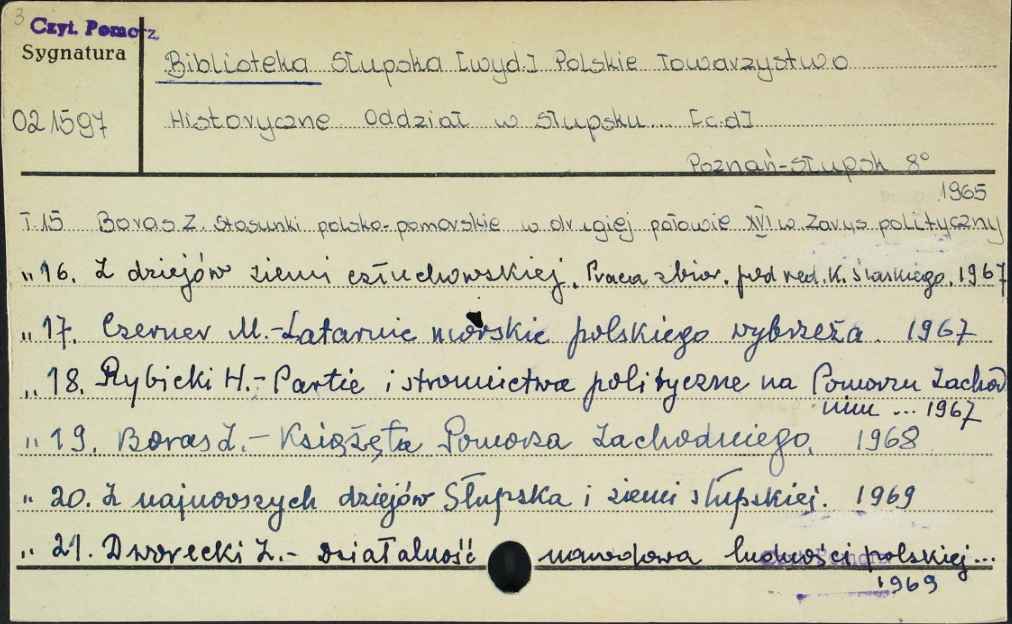 3
Czyt. Pomorz.
Sygnatura
021597
Biblioteka Słupska [wyd.] Polskie Towarzystwo
Historyczne Oddział w Słupsku... [c.d]
Poznań-Słupsk 8°
1965
T.15 Boras Z. Stosunki polsko-pomorskie w drugiej połowie XVI w. Zarys polityczny
„ 16. Z dziejów ziemi człuchowskiej. Praca zbior. pod red. K. Ślaskiego. 1967
„ 17. Czerner M.- Latarnie morskie polskiego wybrzeża. 1967
„ 18. Rybicki H.- Partie i stronnictwa polityczne na Pomorzu Zachod
nim ... 1967
„ 19. Boras Z.- Książęta Pomorza Zachodniego. 1968
„ 20. Z najnowszych dziejów Słupska i ziemi słupskiej. 1969
„ 21. Dworecki Z.- Działalność narodowa ludności polskiej...
1969